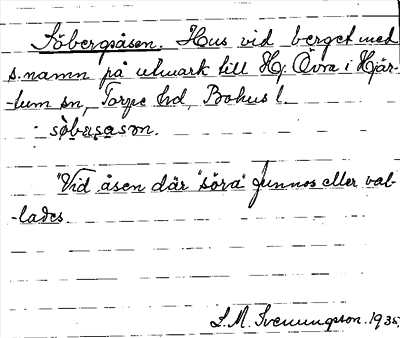 Söbergsåsen. Hus vid berget med
s. namn på utmark till Hg. Övra i Hjär-
-tum sn, Torpe hd, Bohus l.
: sòbærsåsən.
"Vid åsen där "söra" funnos eller vall-
-lades.
S. M. Svenungsson. 1935.